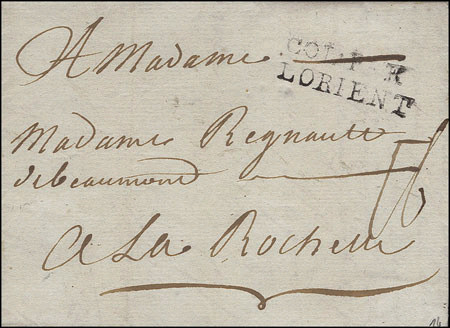 A Madame
COL. PAR
LORIENT
Madame Regnault
de beaumont
A La Rochelle